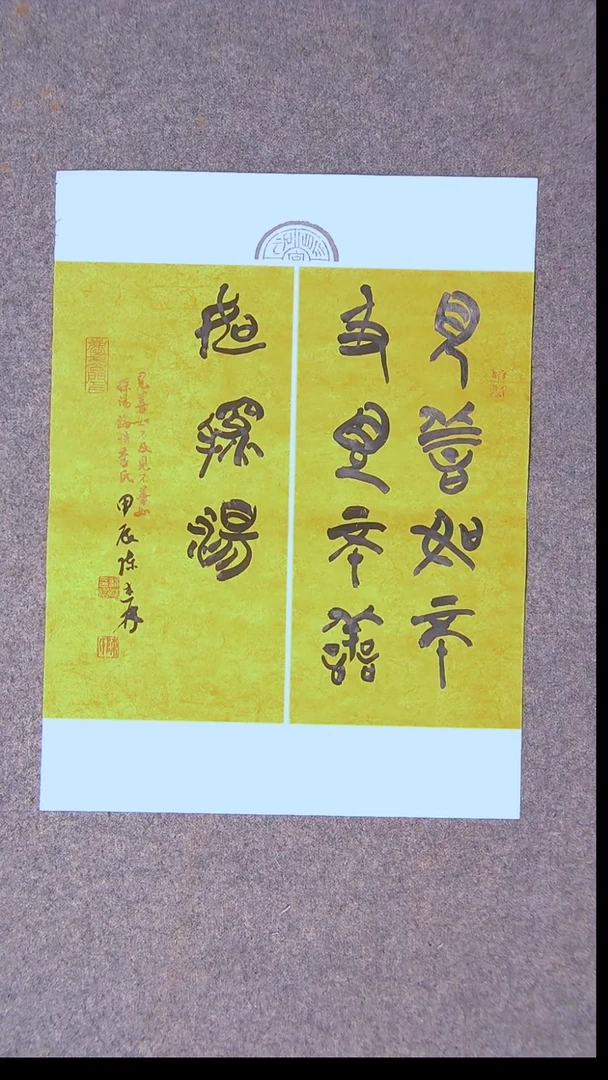 見善如不
及見不善
如探湯
見善如不及見不善如
探湯
甲辰陳